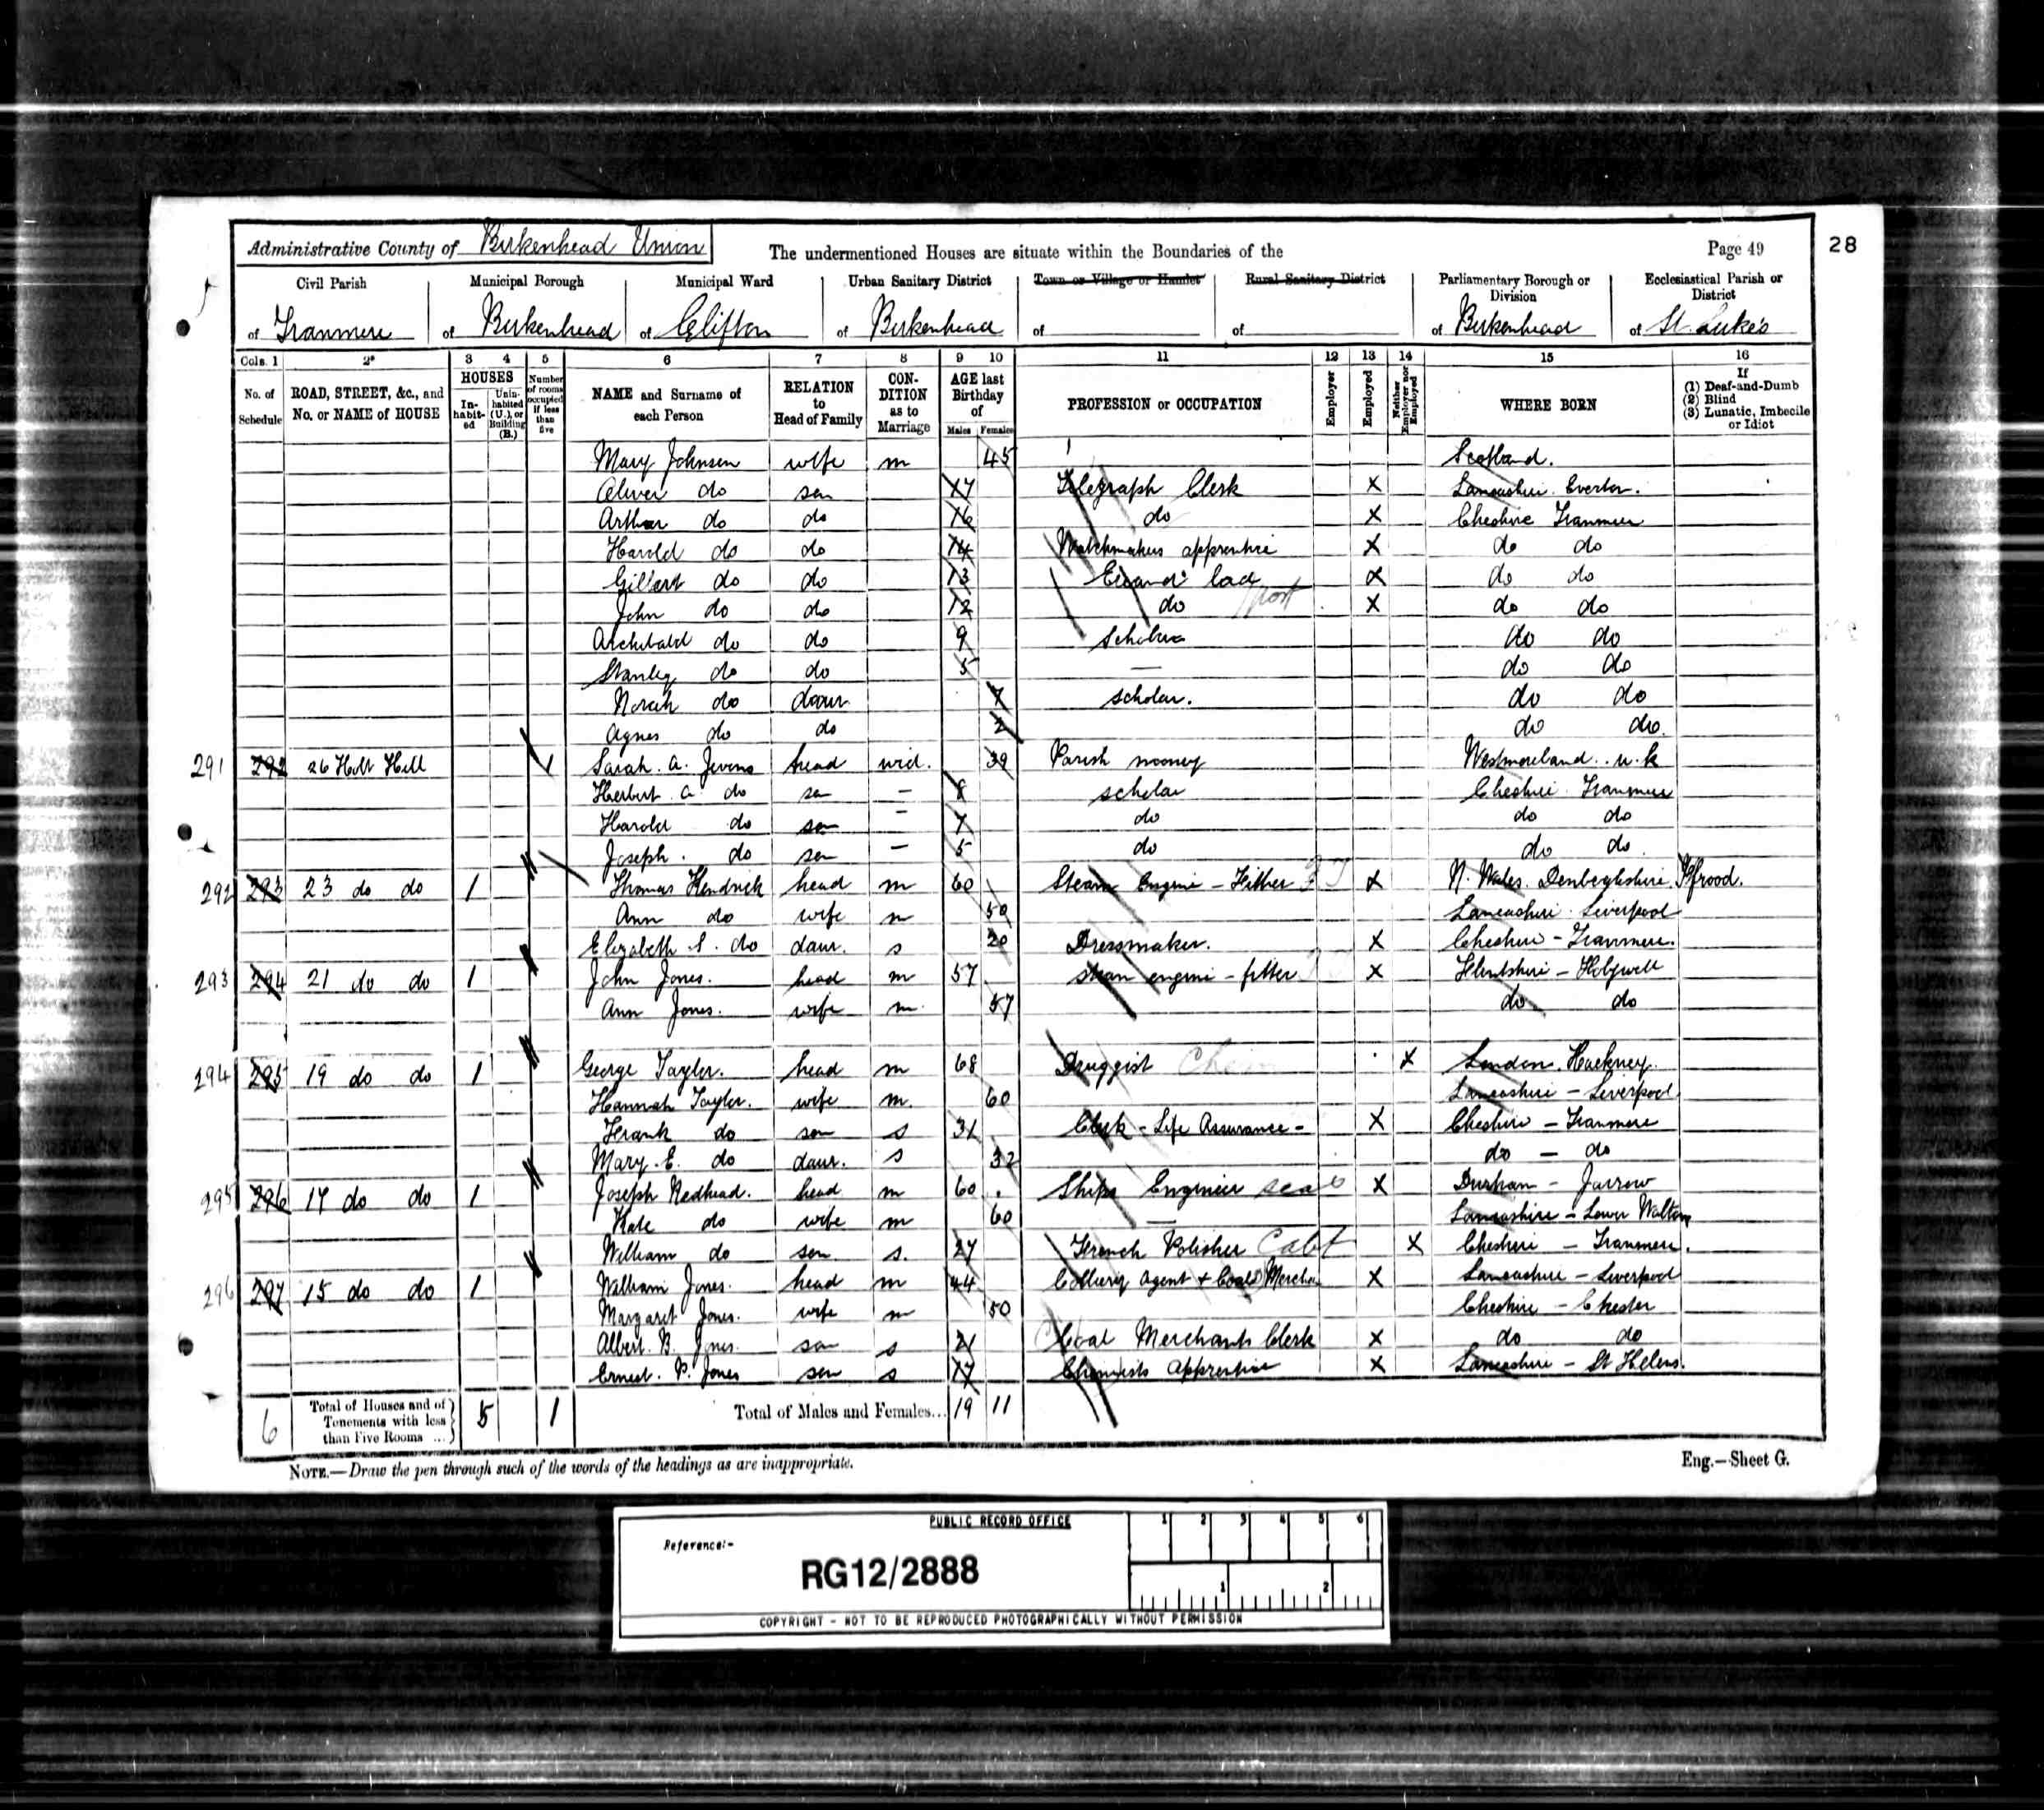 Administrative County of Birkenhead Union
The undermentioned Houses are situate within the Boundaries of the
Page 49
28
Civil Parish of Tranmere
Municipal Borough of Birkenhead
Municipal Ward of Clifton
Urban Sanitary District of Birkenhead
Town or Village or Hamlet of
Rural Sanitary District of
Parliamentary Borough or Division of Birkenhead
Ecclesiastical Parish or District of St. Luke's
Cols. 1 2 3 4 5 6 7 8 9 10 11 12 13 14 15 16
No. of Schedule
ROAD, STREET, &c., and No. or NAME of HOUSE
HOUSES
In-habit-ed
Unin-habited (U.), or Building (B.)
Number of rooms occupied if less than five
NAME and Surname of each Person
RELATION to Head of Family
CON-DITION as to Marriage
AGE last Birthday of
Males Females
PROFESSION or OCCUPATION
Employer
Employed
Neither Employer nor Employed
WHERE BORN
If
(1) Deaf-and-Dumb
(2) Blind
(3) Lunatic, Imbecile or Idiot
Mary Johnson wife m 45 Scotland.
Oliver do son 17 Telegraph Clerk X Lancashire Everton.
Arthur do do 16 do X Cheshire Tranmere
Harold do do 14 Watchmakers apprentice X do do
Gilbert do do 13 Errand lad X do do
John do do 12 do post X do do
Archibald do do 9 Scholar do do
Stanley do do 5 — do do
Norah do daur 7 scholar. do do
Agnes do do 2 do do.
291 292 26 Holt Hill 1 Sarah. A. Jevons head wid. 39 Parish money Westmoreland. u.k
Herbert A do son — 8 scholar Cheshire Tranmere
Harold do son — 7 do do do
Joseph. do son — 5 do do do
292 293 23 do do 1 Thomas Kendrick head m 60 Steam Engine - Fitter X N. Wales. Denbighshire
Ann do wife m 50 Lancashire Liverpool
Elizabeth S. do daur. s 20 Dressmaker. X Cheshire - Tranmere.
293 294 21 do do 1 John Jones. head m 57 steam engine - fitter X Flintshire - Holywell
Ann Jones. wife m. 57 do do
294 295 19 do do 1 George Taylor. head m 68 Druggist Chem X London. Hackney.
Hannah Taylor. wife m. 60 Lancashire - Liverpool
Frank do son s 31 Clerk - Life Assurance - X Cheshire - Tranmere
Mary. E. do daur. s 32 do - do
295 296 17 do do 1 Joseph Redhead. head m 60 Ships Engineer sea X Durham - Jarrow
Kate do wife m 60 — Lancashire - Lower Walton
William do son s. 27 French Polisher Cabt X Cheshire - Tranmere.
296 297 15 do do 1 William Jones. head m 44 Colliery Agent + Coal Mercha X Lancashire - Liverpool
Margaret Jones. wife m 50 Cheshire - Chester
Albert. B. Jones. son s 21 Coal Merchants Clerk X do do
Ernest. P. Jones son s 17 Chemists apprentice X Lancashire - St Helens.
6 Total of Houses and of Tenements with less than Five Rooms ... 5 1 Total of Males and Females... 19 11
NOTE.—Draw the pen through such of the words of the headings as are inappropriate.
Eng.—Sheet G.
PUBLIC RECORD OFFICE
Reference:-
RG12/2888
1 2 3 4 5 6
1 2
COPYRIGHT - NOT TO BE REPRODUCED PHOTOGRAPHICALLY WITHOUT PERMISSION